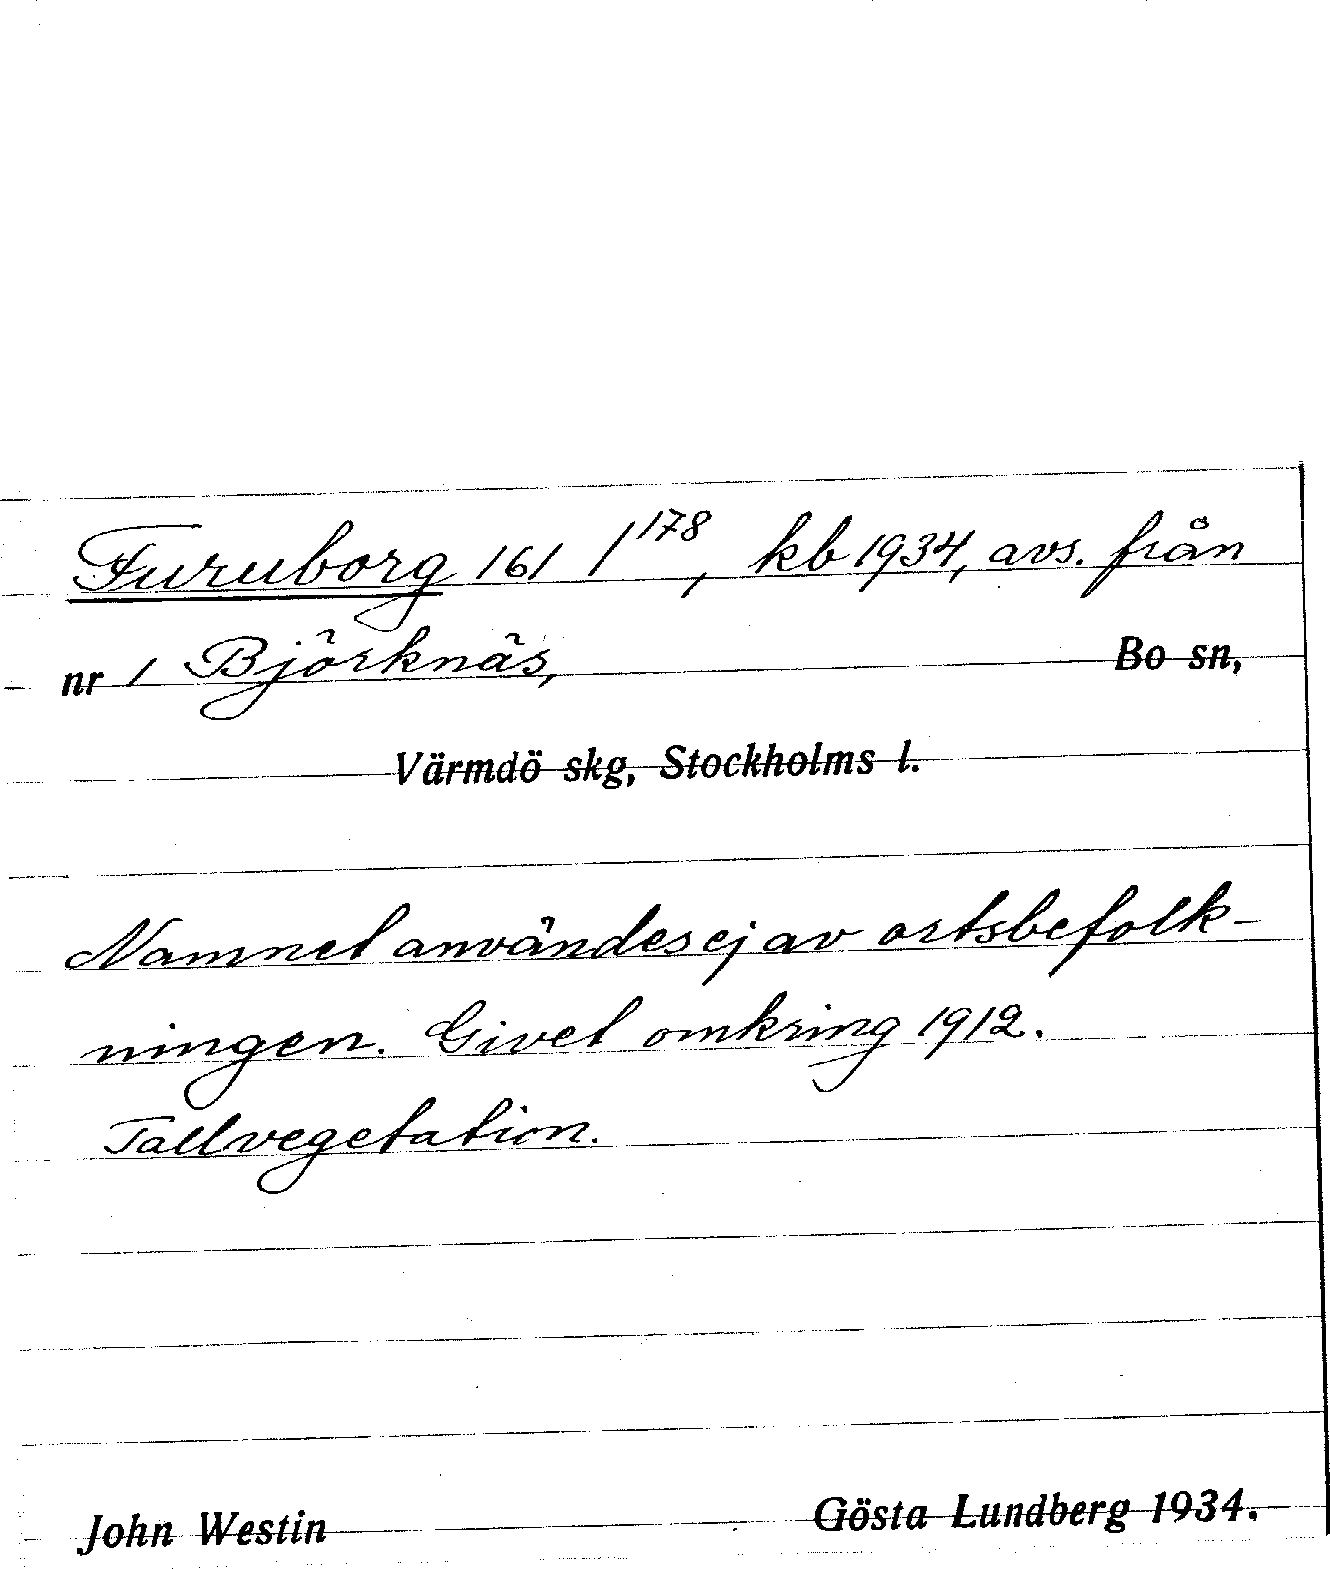 Furuborg 161 1 178, kb 1934, avs. från
nr 1 Björknäs, Bo sn,
Värmdö skg, Stockholms l.
Namnet användes ej av ortsbefolk-
ningen. Givet omkring 1912.
Tallvegetation.
John Westin Gösta Lundberg 1934.